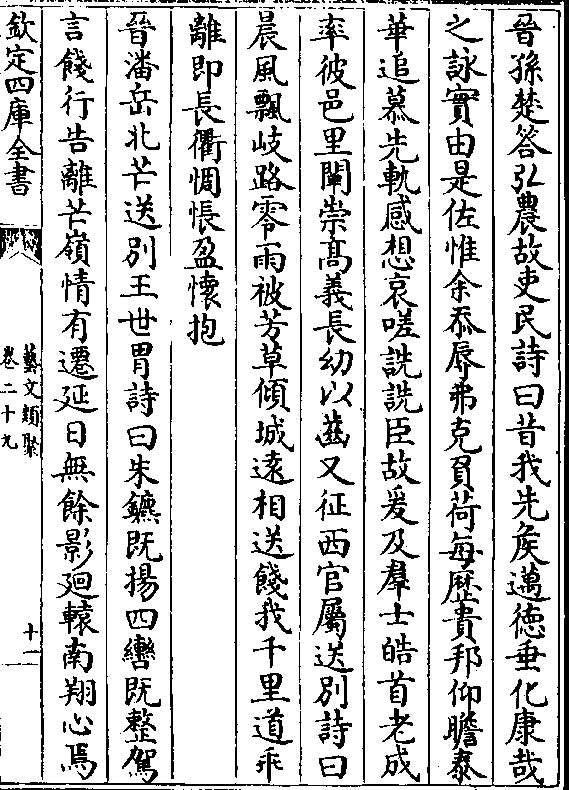 晉孫楚答弘農故吏民詩曰昔我先矦邁徳垂化康哉
之詠實由是佐惟余忝辱弗克負荷每歷貴邦仰瞻泰
華追慕先軌感想哀嗟詵詵臣故爰及羣士皓首老成
率彼邑里闡崇髙義長㓜以齒又征西官屬送别詩曰
晨風飄岐路零雨被芳草傾城逺相送餞我千里道乖
離即長衢惆悵盈懷抱
晉潘岳北芒送别王世胄詩曰朱鑣既揚四轡既整駕
言餞行告離芒嶺情有遷延日無餘影廻轅南翔心焉
欽定四庫全書
藝文類聚
卷二十九
十一